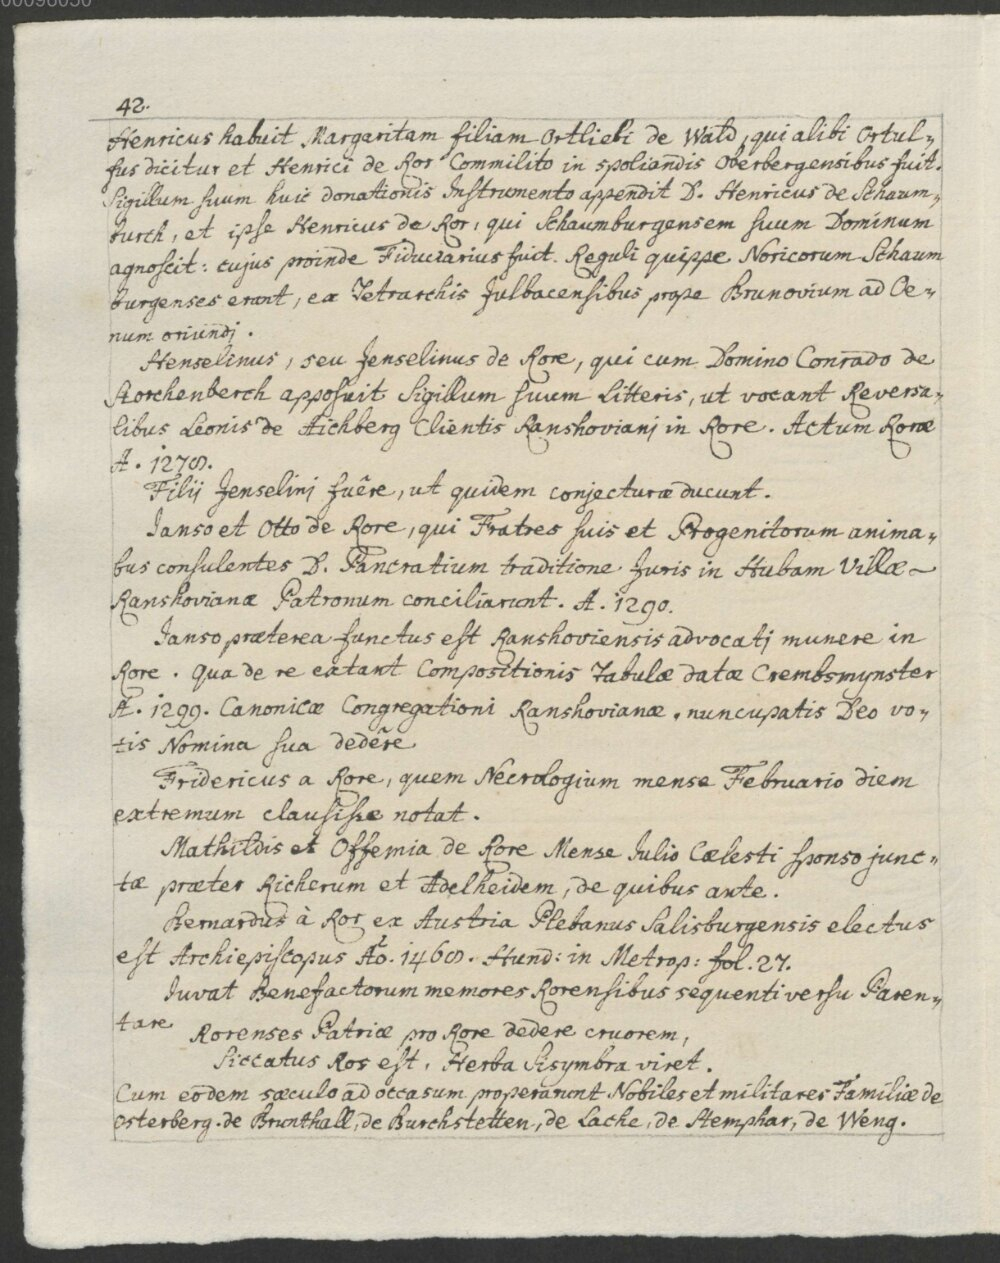 00096030
42.
Henricus habuit Margaritam filiam Ortliebi de Wald, qui alibi Ortul„
fus dicitur et Henrici de Ror Commilito in spoliandis Oberbergensibus fuit.
Sigillum suum huic donationis Instrumento appendit D. Henricus de Schaum„
burch, et ipse Henricus de Ror, qui Schaumburgensem suum Dominum
agnoscit: cujus proinde Fiduciarius fuit. Reguli quippe Noricorum Schaum
burgenses erant, ex Tetrarchis Julbacensibus prope Brunovium ad Oe„
num oriundj.
Henselinus, seu Jenselinus de Rore, qui cum Domino Conrado de
Storchenberch apposuit Sigillum suum Litteris, ut vocant Reversa„
libus Leonis de Aichberg Clientis Ranshovianj in Rore. Actum Roræ
A. 1278.
Filij Jenselinj fuêre, ut quidem conjecturæ ducunt.
Janso et Otto de Rore, qui Fratres suis et Progenitorum anima„
bus consulentes D. Pancratium traditione Juris in Hubam Villæ
Ranshovianæ Patronum conciliarunt. A. 1290.
Janso præterea functus est Ranshoviensis advocatj munere in
Rore. Qua de re extant Compositionis Tabulæ datæ Crembsmynster
A. 1299. Canonicæ Congregationi Ranshovianæ, nuncupatis Deo vo„
tis Nomina sua dedêre
Fridericus a Rore, quem Necrologium mense Februario diem
extremum clausisse notat.
Mathildis et Offemia de Rore Mense Julio Cælesti sponso junc„
tæ præter Richerum et Adelheidem, de quibus ante.
Bernardus à Ror ex Austria Plebanus Salisburgensis electus
est Archiepiscopus Aō. 1468. Hund: in Metrop: fol. 27.
Juvat Benefactorum memores Rorensibus sequenti versu Paren„
tare
Rorenses Patriæ pro Rore dedere cruorem,
Siccatus Ros est, Herba Sisymbra viret.
Cum eodem sæculo ad occasum properarunt Nobiles et militares Familiæ de
Osterberg, de Brunthall, de Burchstetten, de Lache, de Stemphar, de Weng.